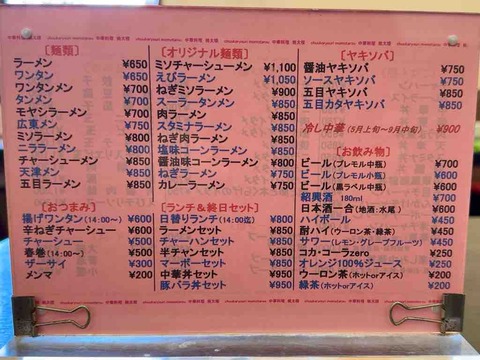 【麺類】
ラーメン ¥650
ワンタン ¥650
ワンタンメン ¥700
タンメン ¥700
モヤシラーメン ¥700
広東メン ¥750
ミソラーメン ¥800
ニララーメン ¥800
チャーシューメン ¥850
天津メン ¥850
五目ラーメン ¥850
【おつまみ】
揚げワンタン(14:00～) ¥600
辛ねぎチャーシュー ¥600
チャーシュー ¥500
春巻(14:00～) ¥500
ザーサイ ¥300
メンマ ¥200
【オリジナル麺類】
ミソチャーシューメン ¥1,100
えびラーメン ¥1,050
ねぎミソラーメン ¥900
スーラータンメン ¥850
肉ラーメン ¥850
スタミナラーメン ¥850
ねぎ肉ラーメン ¥850
塩味コーンラーメン ¥800
醤油味コーンラーメン ¥800
ねぎラーメン ¥750
カレーラーメン ¥750
【ランチ&終日セット】
日替りランチ(14:00迄) ¥800
ラーメンセット ¥850
チャーハンセット ¥850
半チャンセット ¥850
マーボーセット ¥850
中華丼セット ¥950
豚バラ丼セット ¥950
【ヤキソバ】
醤油ヤキソバ ¥750
ソースヤキソバ ¥750
五目ヤキソバ ¥850
五目カタヤキソバ ¥850
冷し中華(5月上旬～9月中旬) ¥900
【お飲み物】
ビール(プレモル中瓶) ¥700
ビール(プレモル小瓶) ¥600
ビール(黒ラベル中瓶) ¥600
紹興酒 180ml ¥700
日本酒一合(地酒:水尾) ¥600
ハイボール ¥450
酎ハイ(ウーロン茶・緑茶) ¥450
サワー(レモン・グレープフルーツ) ¥450
コカ・コーラzero ¥250
オレンジ100%ジュース ¥250
ウーロン茶(ホットorアイス) ¥200
緑茶(ホットorアイス) ¥200